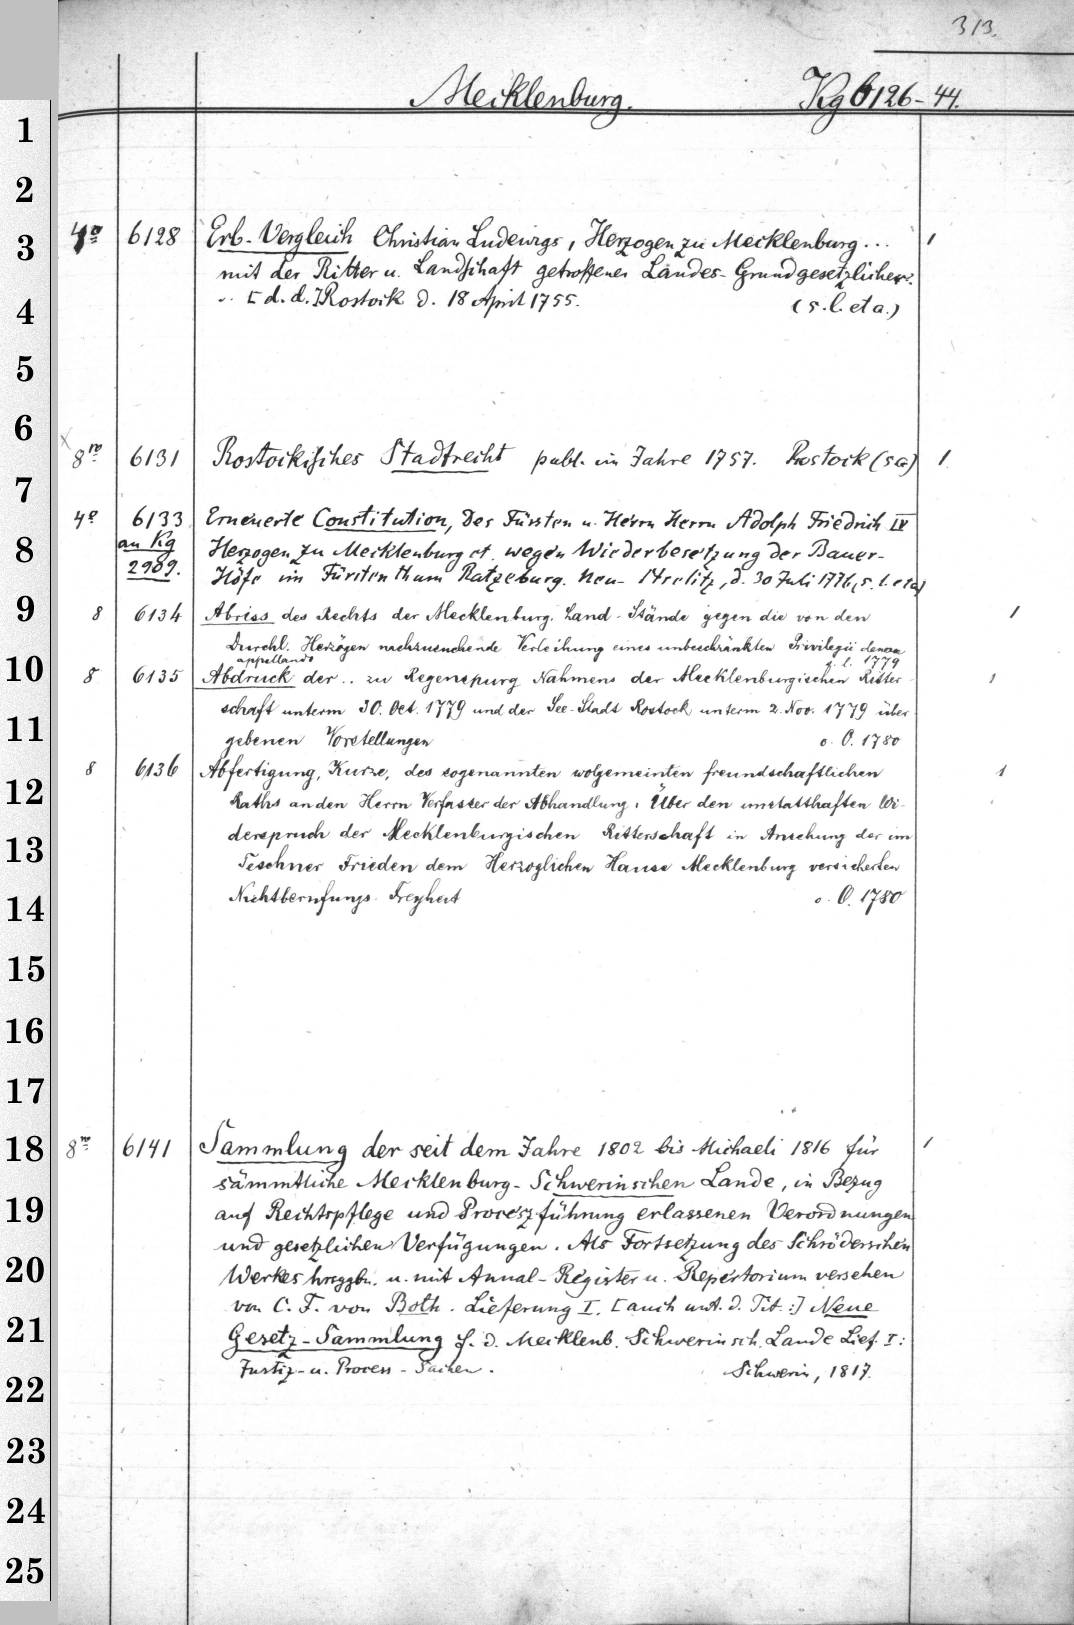 313.
Mecklenburg. Kg 6126-44.
1
2
3
4
5
6
7
8
9
10
11
12
13
14
15
16
17
18
19
20
21
22
23
24
25
4o 6128 Erb-Vergleich Christian Ludewigs, Herzogen zu Mecklenburg... 1
mit der Ritter u. Landschaft getroffener Landes-Grundgesetzlicher
.. [d. d.] Rostock d. 18 April 1755. (s. l. et a.)
8vo 6131 Rostockisches Stadtrecht publ. im Jahre 1757. Rostock (s a) 1
4o 6133 Erneuerte Constitution, Des Fürsten u. Herrn Herrn Adolph Friedrich IV
an Kg Herzogen zu Mecklenburg et. wegen Wiederbesetzung der Bauer-
2989. Höfe im Fürstenthum Ratzeburg. Neu-Strelitz, d. 30 Juli 1776 (s. l. et a)
8 6134 Abriss des Rechts der Mecklenburg. Land-Stände gegen die von den 1
Durchl. Herzögen nachzusuchende Verleihung eines unbeschränkten Privilegii de non
appellando s. l. 1779
8 6135 Abdruck der .. zu Regenspurg Nahmens der Mecklenburgischen Ritter- 1
schaft unterm 30. Oct. 1779 und der See-Stadt Rostock unterm 2. Nov. 1779 über
gebenen Vorstellungen o. O. 1780
8 6136 Abfertigung, Kurze, des sogenannten wolgemeinten freundschaftlichen 1
Raths an den Herrn Verfasser der Abhandlung: Über den unstatthaften Wi-
derspruch der Mecklenburgischen Ritterschaft in Ansehung der im
Teschner Frieden dem Herzoglichen Hause Mecklenburg versicherten
Nichtberufungs-Freyheit o. O. 1780
8vo 6141 Sammlung der seit dem Jahre 1802 bis Michaeli 1816 für 1
sämmtliche Mecklenburg-Schwerinschen Lande, in Bezug
auf Rechtspflege und Processführung erlassenen Verordnungen
und gesetzlichen Verfügungen. Als Fortsetzung des Schröderschen
Werkes hrsggbn. u. mit Annual-Register u. Repertorium versehen
von C. F. von Both. Lieferung I. [auch unt. d. Tit.:] Neue
Gesetz-Sammlung f. d. Mecklenb. Schwerinsch. Lande Lief. I:
Justiz- u. Process-Sachen. Schwerin, 1817.